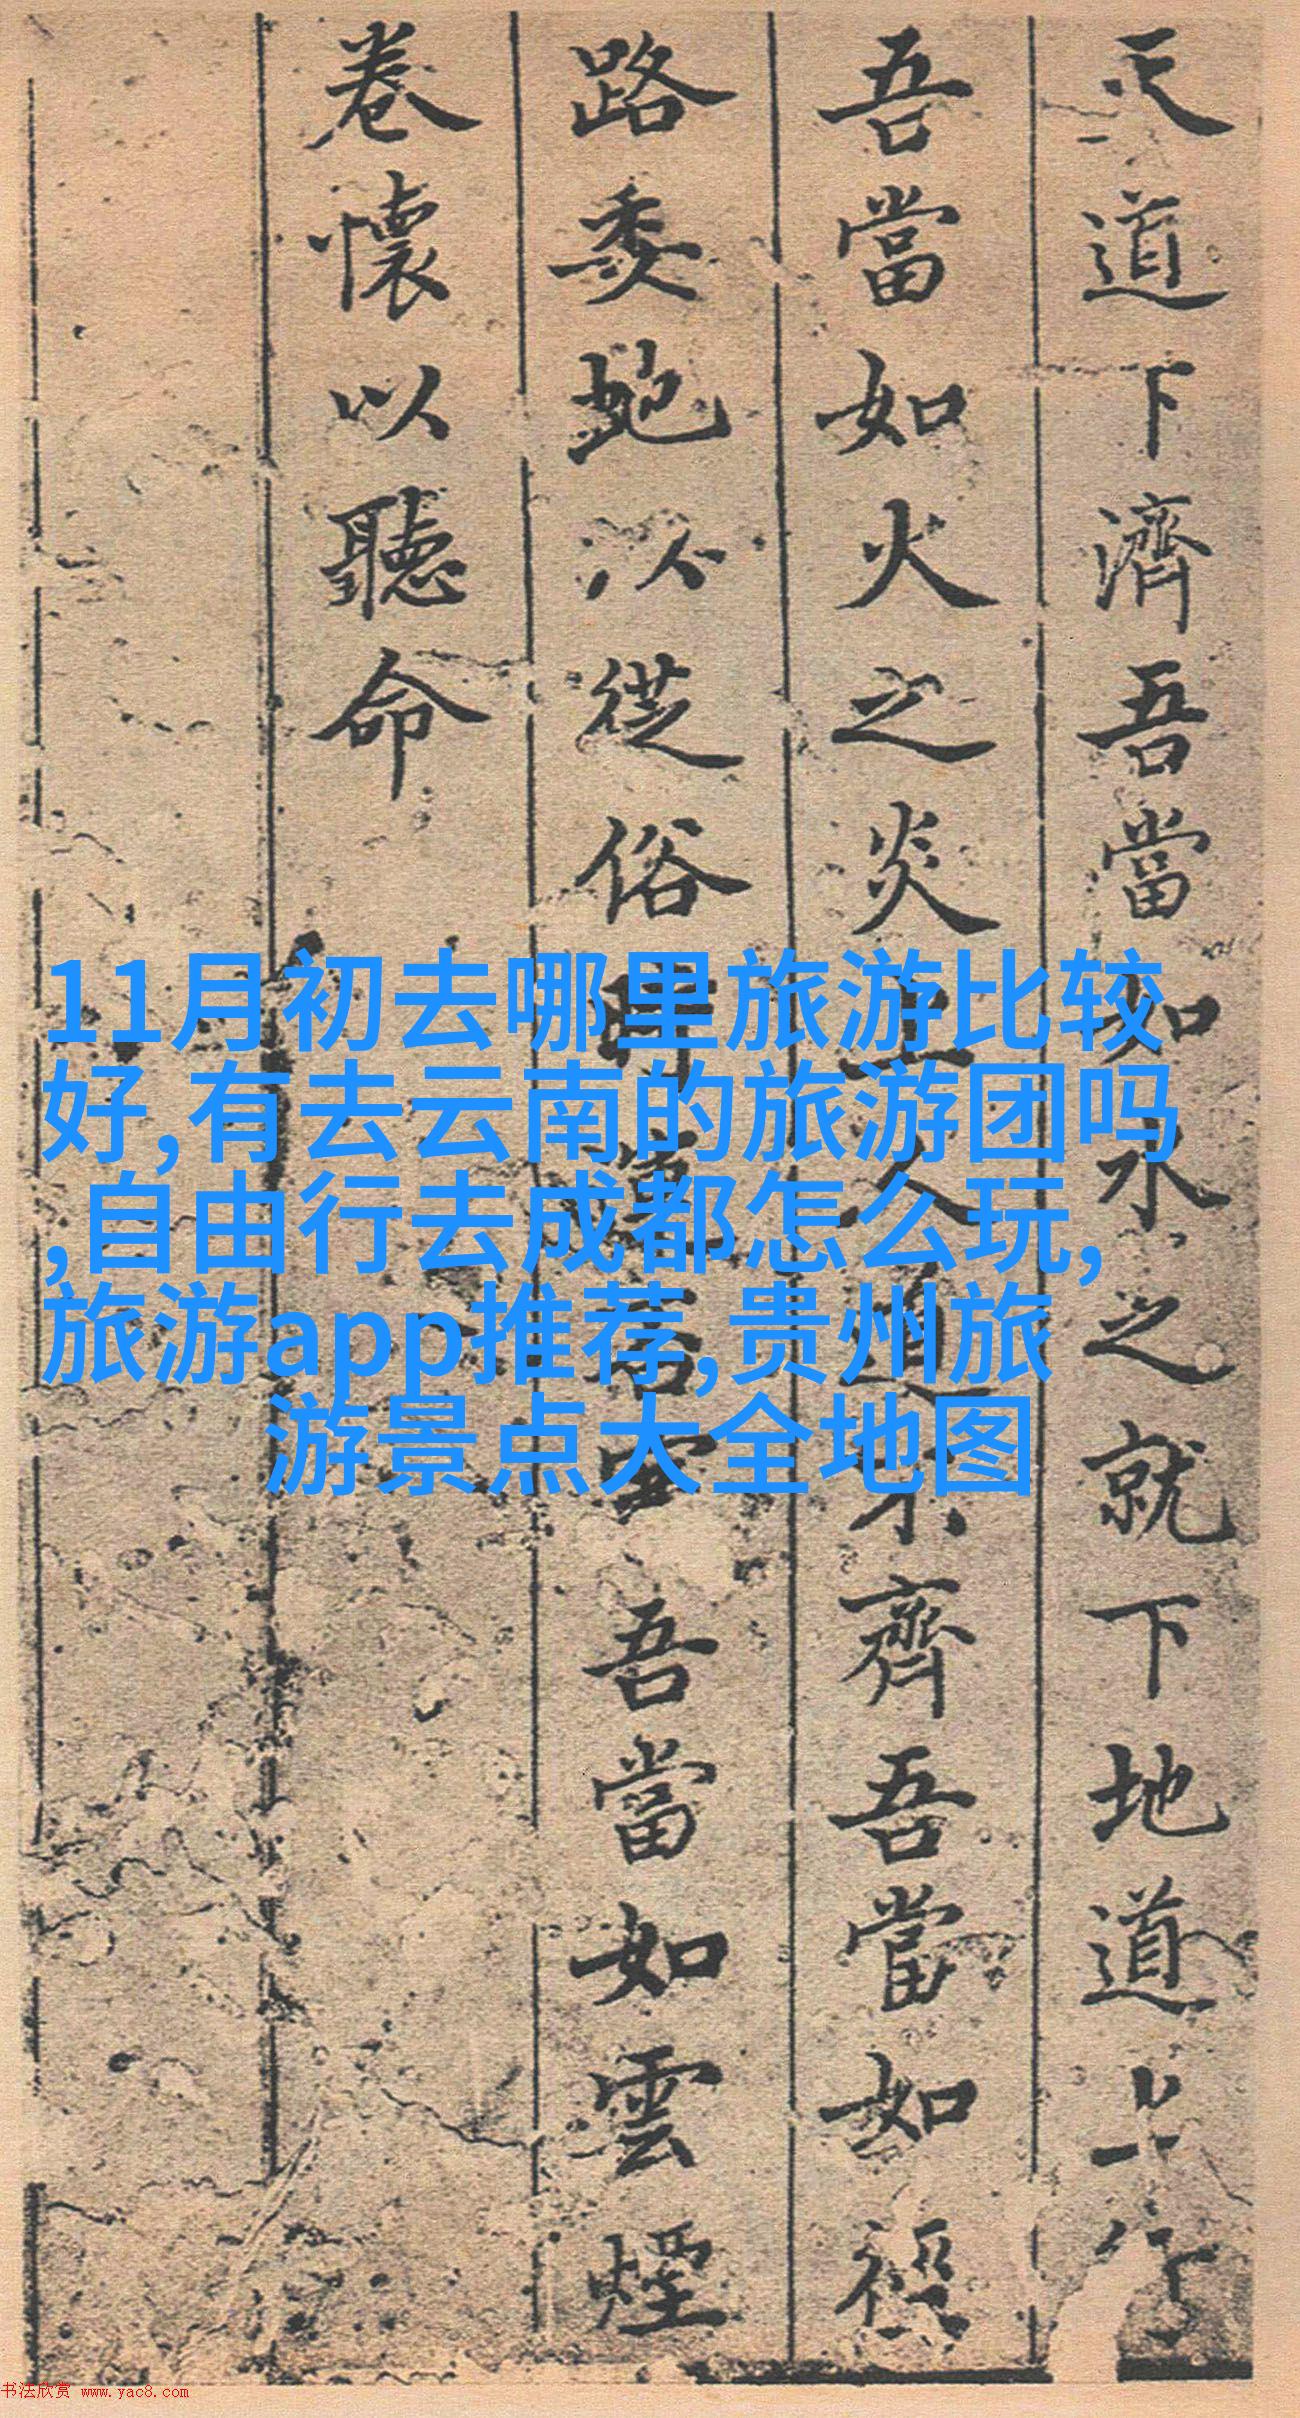 天道下濟吾當如水之就下地道上行
吾當如火之炎上人道不齊吾當如
路委虵以從俗時吾當如雲煙
卷懷以聽命
11月初去哪里旅游比较
好,有去云南的旅游团吗
,自由行去成都怎么玩,
旅游app推荐,贵州旅
游景点大全地图
书法欣赏 www.yac8.com